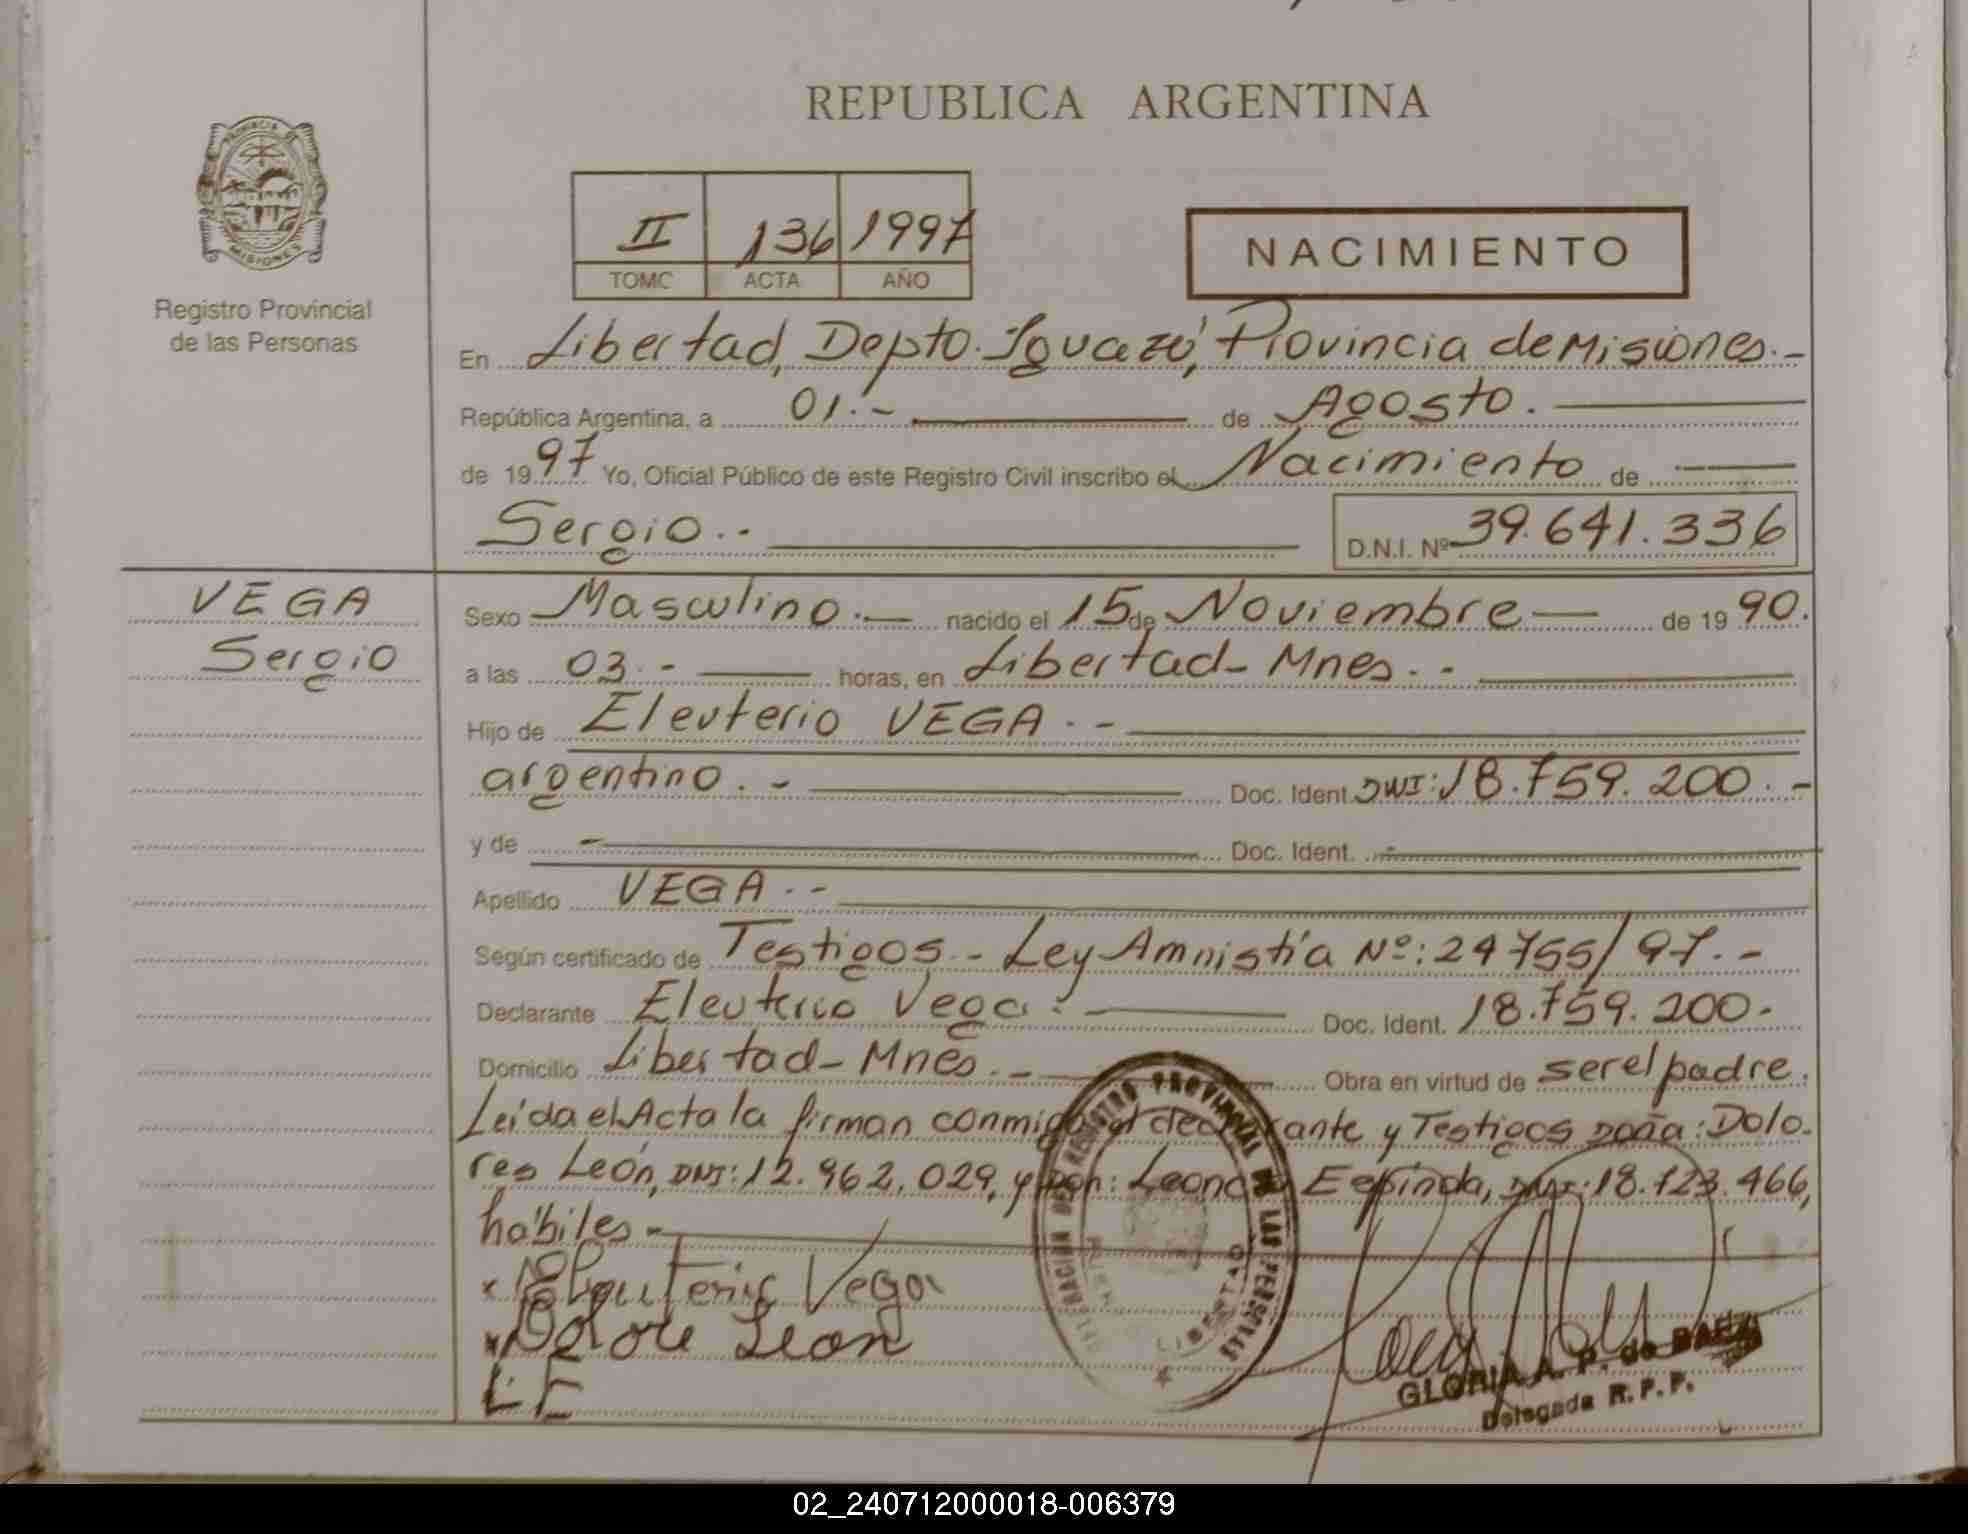 REPUBLICA ARGENTINA
PROVINCIA DE
MISIONES
Registro Provincial
de las Personas
II 136 1997
TOMO ACTA AÑO
NACIMIENTO
En Libertad, Depto. Iguazú, Provincia de Misiones.-
República Argentina, a 01.- de Agosto.
de 1997 Yo, Oficial Público de este Registro Civil inscribo el Nacimiento de
Sergio.- D.N.I. Nº 39.641.336
VEGA
Sergio
Sexo Masculino.- nacido el 15 de Noviembre de 1990.
a las 03.- horas, en Libertad- Mnes.-
Hijo de Eleuterio VEGA.-
argentino.- Doc. Ident. DNI: 18.759.200.-
y de - Doc. Ident. -
Apellido VEGA.-
Según certificado de Testigos.- Ley Amnistía Nº: 24755/97.-
Declarante Eleuterio Vega.- Doc. Ident. 18.759.200.
Domicilio Libertad- Mnes.- Obra en virtud de ser el padre.
Leída el Acta la firman conmigo el declarante y Testigos Doña: Dolo-
res León, DNI: 12.962.029, y Don: Espínda, DNI: 18.723.466,
hábiles-
x Eleuterio Vega
x Dolore Leon
L E
DELEGACION DEL REGISTRO PROVINCIAL DE LAS PERSONAS
LIBERTAD
GLORIA A. P. de BAEZ
Delegada R.P.P.
02_240712000018-006379